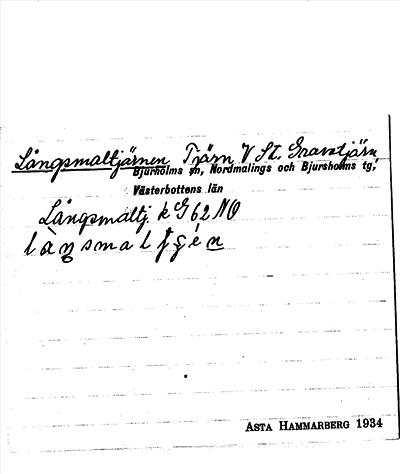 Långsmaltjärnen Tjärn V St. Gravatjärn
Bjurholms sn, Nordmalings och Bjursholms tg,
Västerbottens län
Långsmaltj. k G 62 NO
ASTA HAMMARBERG 1934